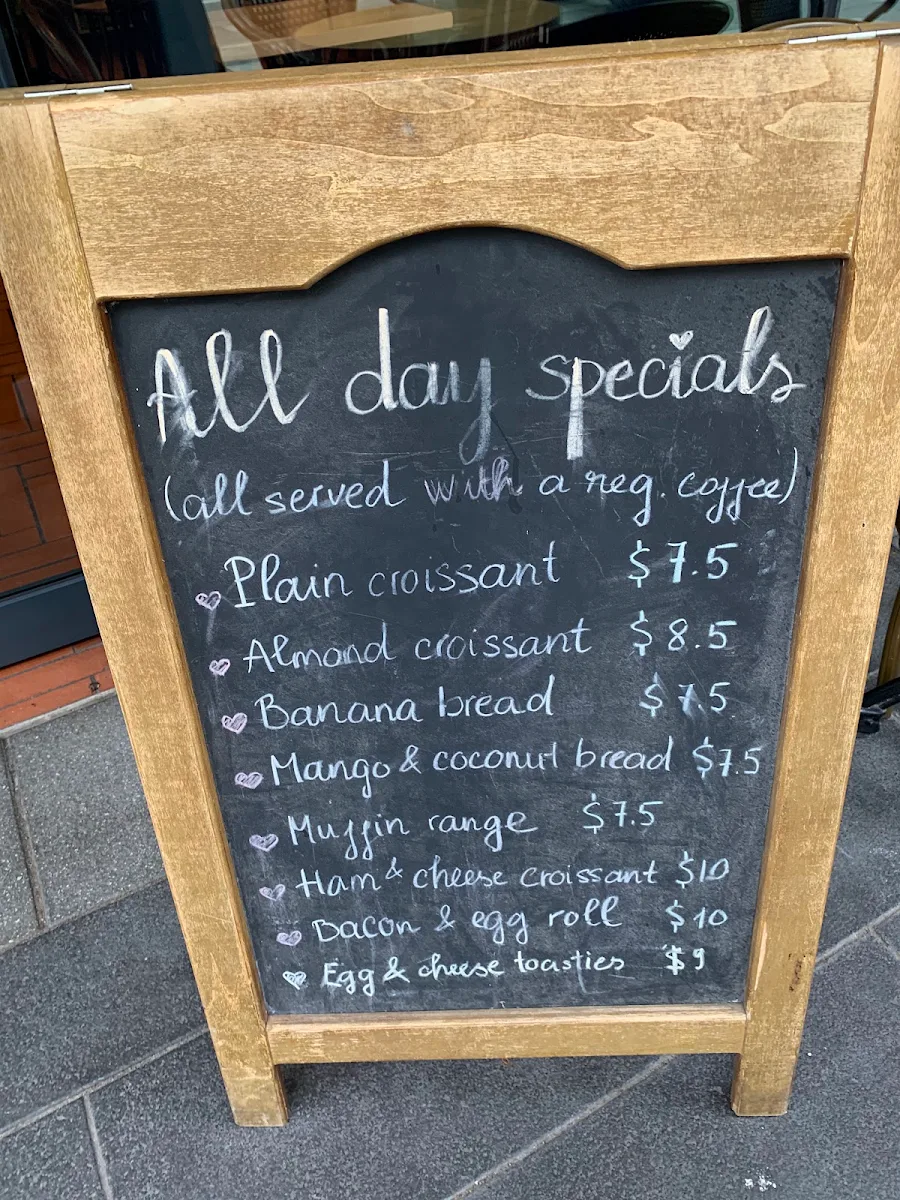 All day specials
(all served with a reg. coffee)
Plain croissant $7.5
Almond croissant $8.5
Banana bread $7.5
Mango & coconut bread $7.5
Muffin range $7.5
Ham & cheese croissant $10
Bacon & egg roll $10
Egg & cheese toasties $9